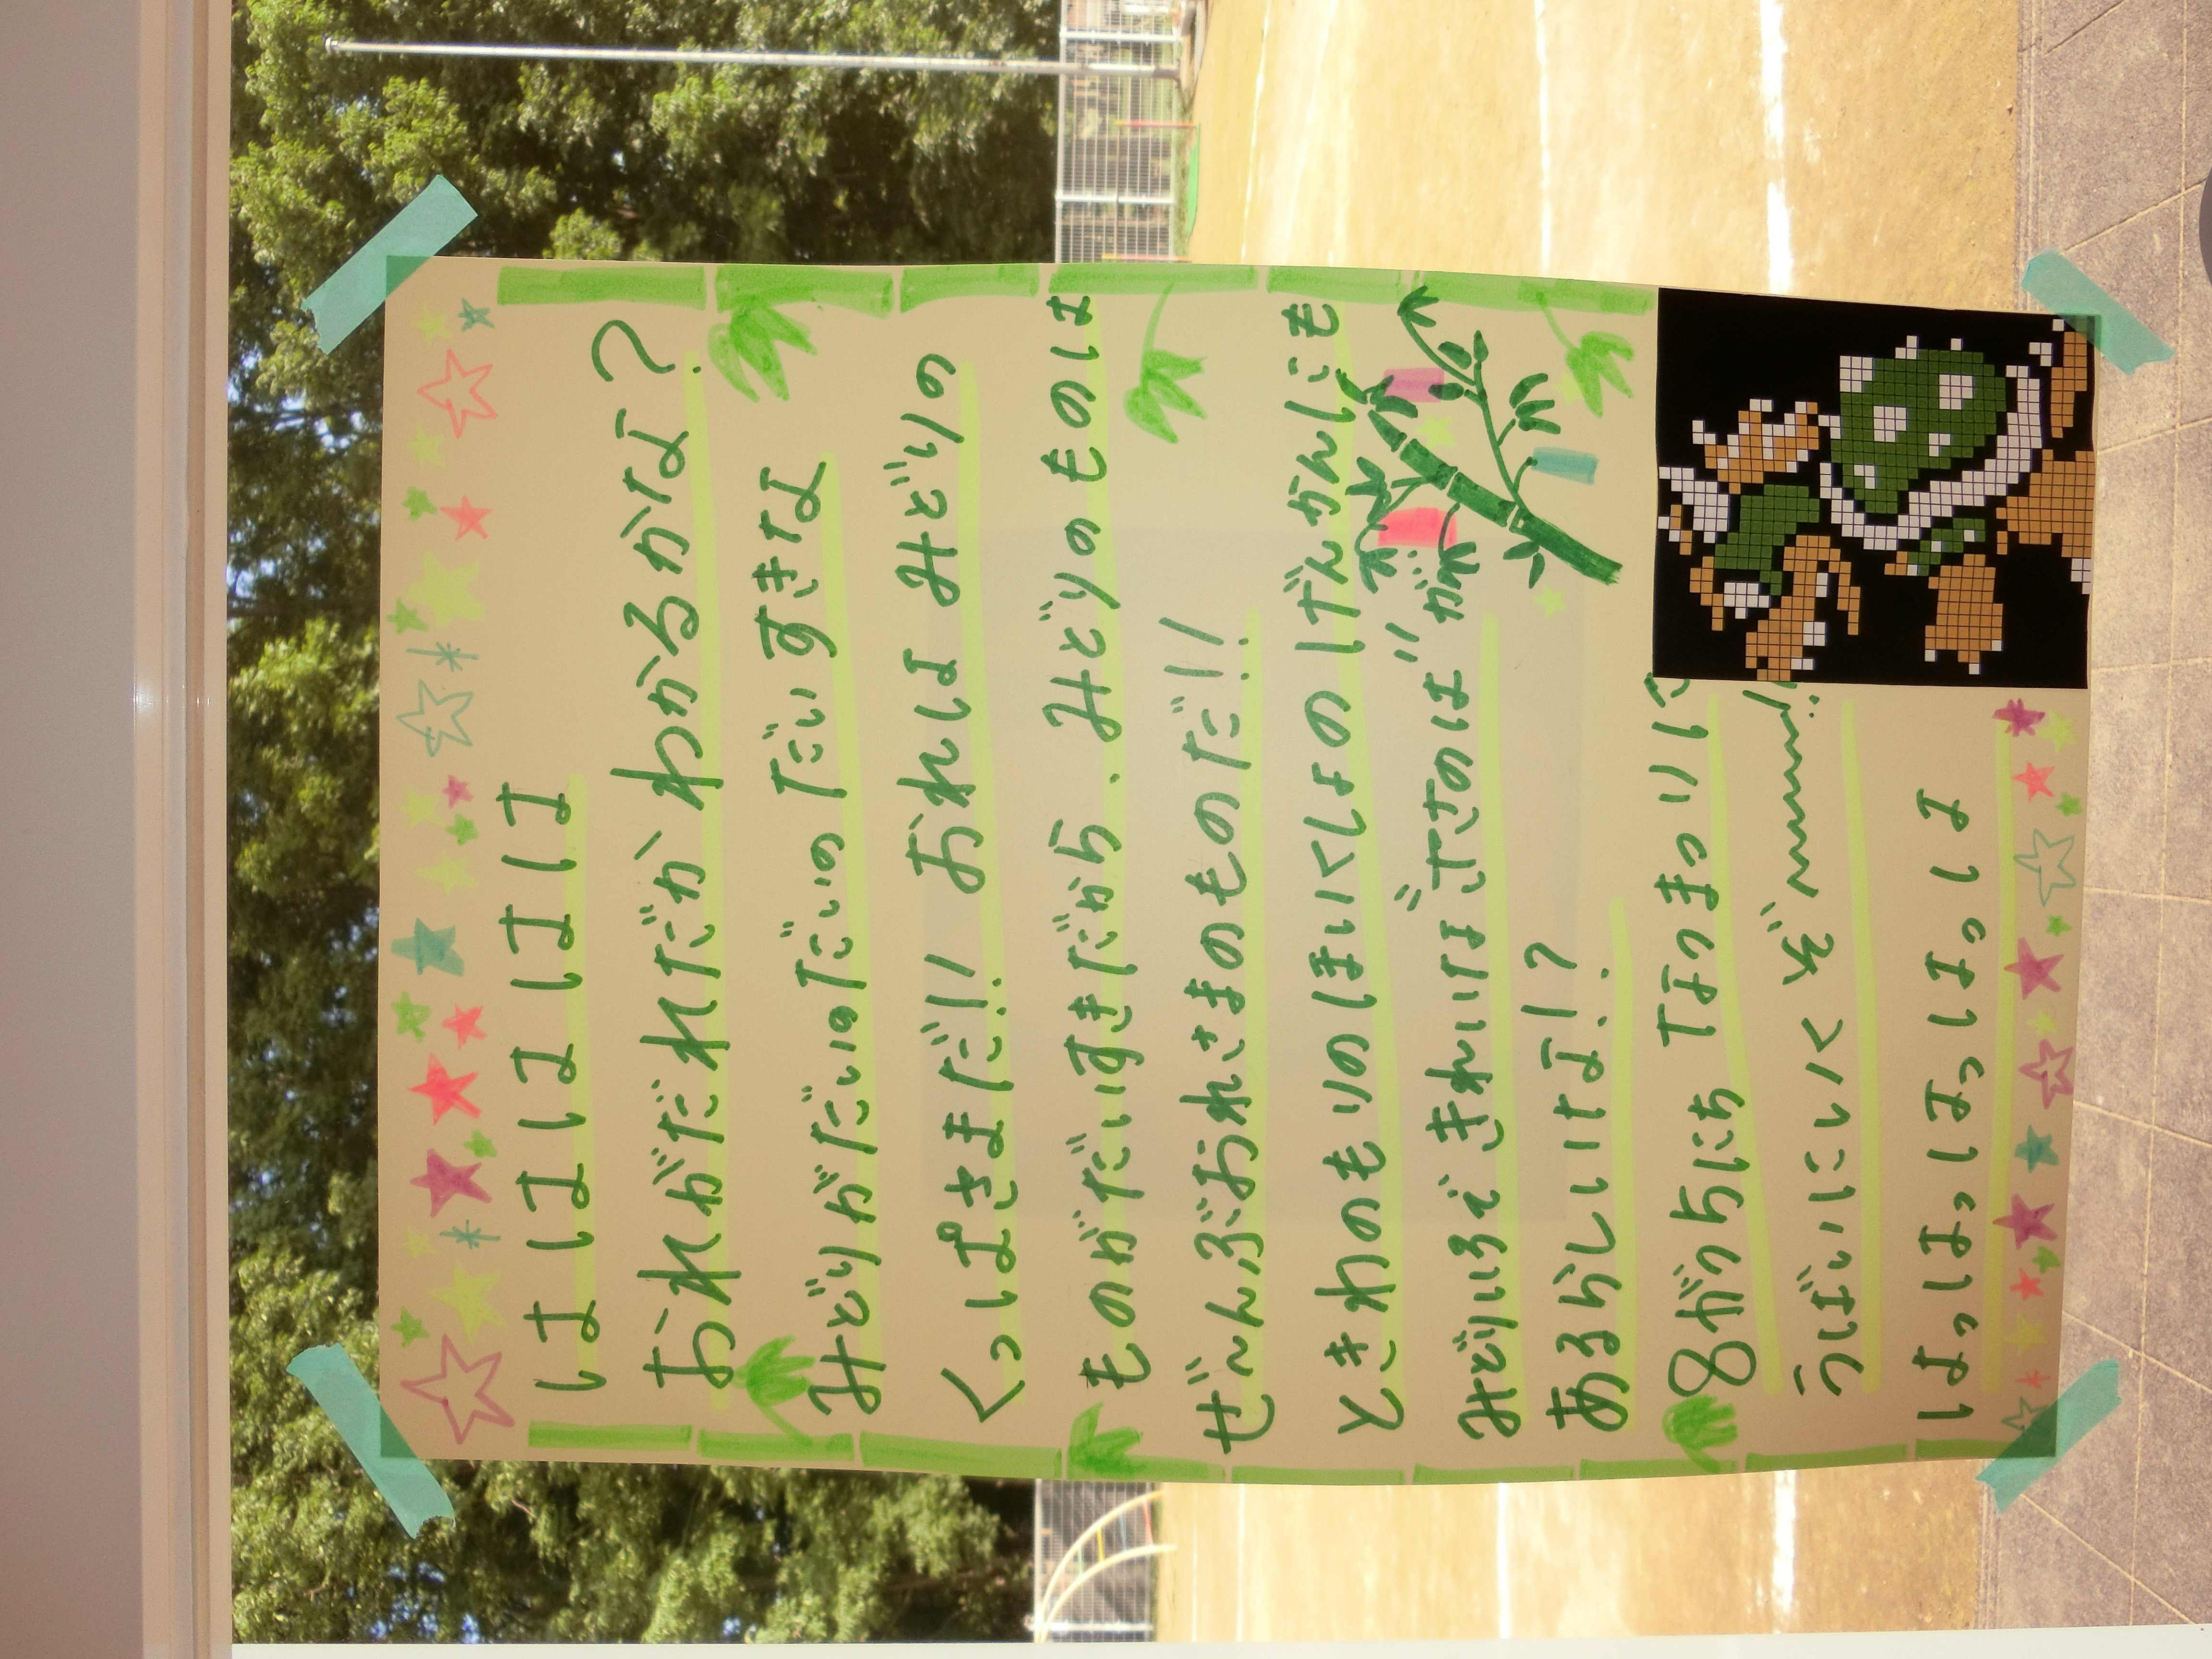 はははははははは
おれがだれだか わかるかな?
みどりがだいのだいのだいの だいすきな
くっぱさまだ!! おれは みどりの
ものがだいすきだから、みどりのものは
ぜ〜んぶおれさまのものだ!!
ときわのもりのほいくしょの げんかんにも
みどりいろで きれいな"ささのは"が
あるらしいな!?
8がつ5にち なつまつりに
うばいにいくぞ〜!!
はっはっはっはっはっは